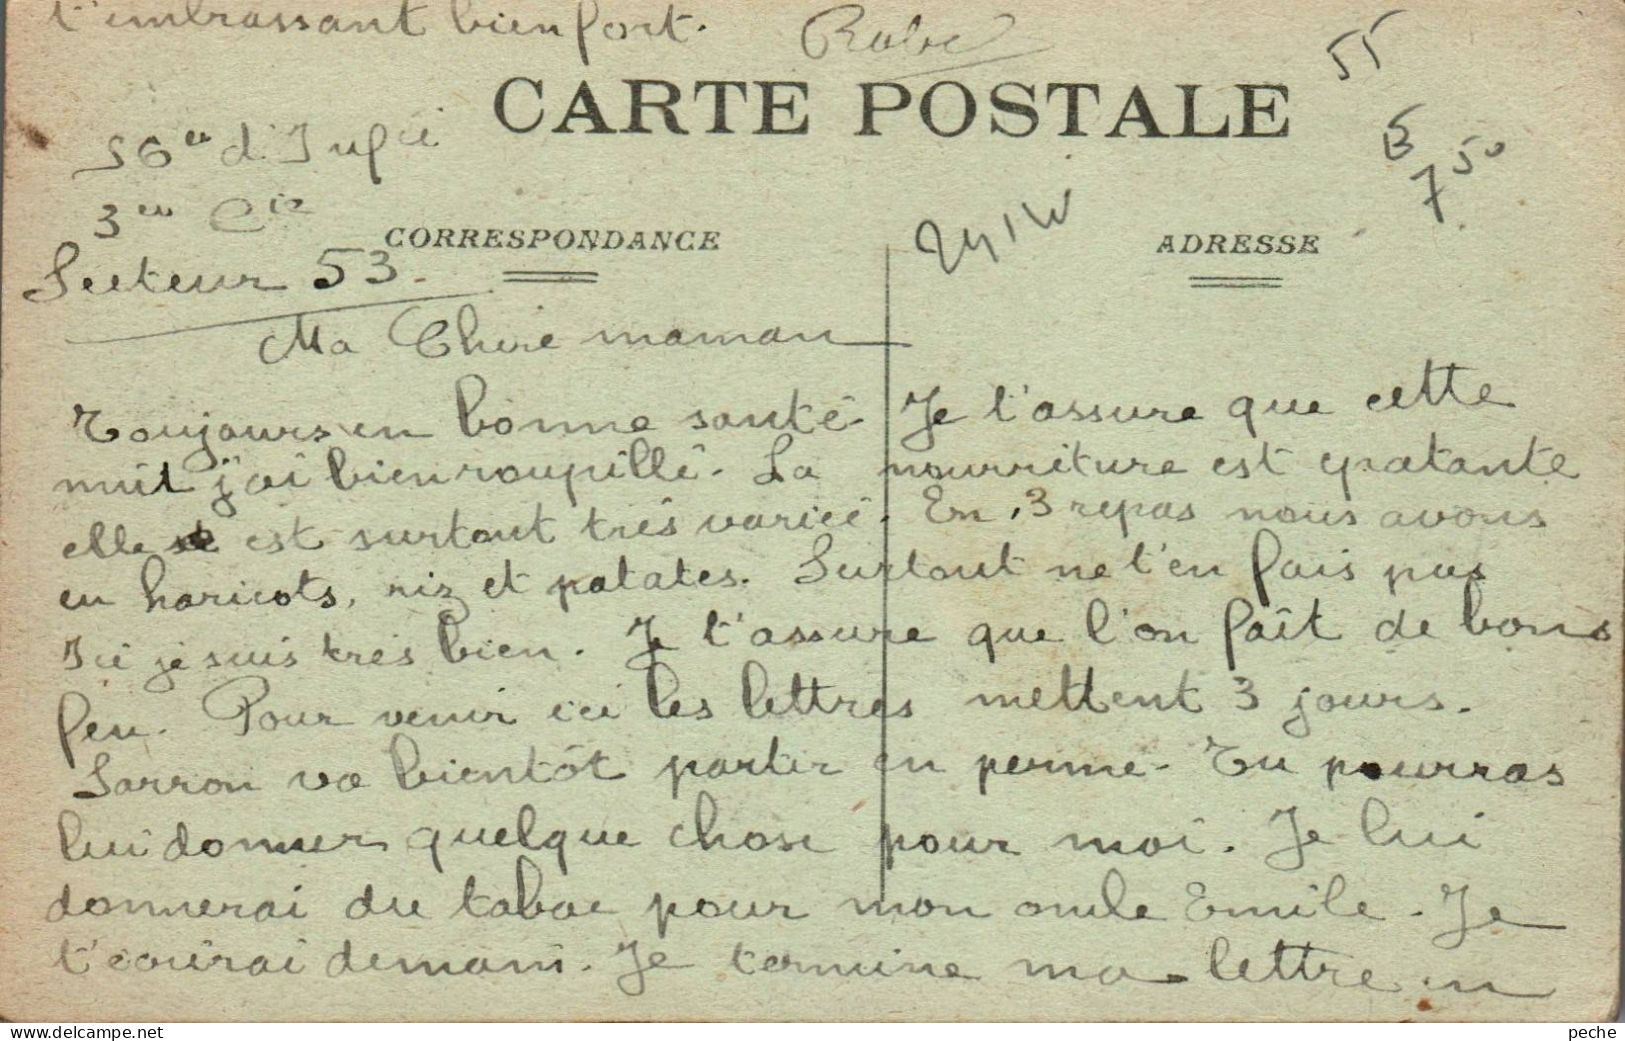 t'embrassant bien fort.
CARTE POSTALE
55
B
7 50
56e d'Infie
3em Cie
CORRESPONDANCE
ADRESSE
Secteur 53.
Ma Chere maman
Toujours en bonne santé. Je t'assure que cette
nuit j'ai bien roupillé. La nourriture est epatante
elle est surtout très variée. En 3 repas nous avons
eu haricots, riz et patates. Surtout ne t'en fais pas
Ici je suis très bien. Je t'assure que l'on fait de bons
feu. Pour venir ici les lettres mettent 3 jours.
Sarron va bientôt partir en perme. Tu pourras
lui donner quelque chose pour moi. Je lui
donnerai du tabac pour mon oncle Emile. Je
t'écrirai demain. Je termine ma lettre en
peche